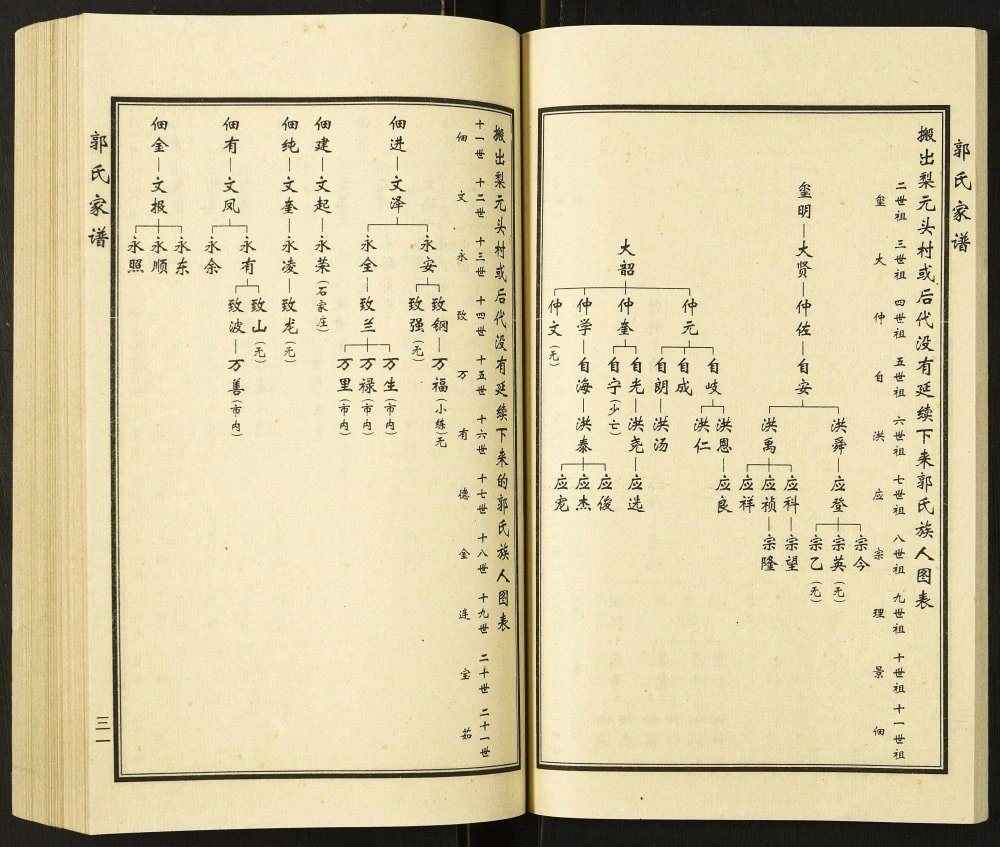 郭氏家谱
搬出梨元头村或后代没有延续下来郭氏族人图表
二世祖 三世祖 四世祖 五世祖 六世祖 七世祖 八世祖 九世祖 十世祖 十一世祖
玺 大 仲 自 洪 应 宗 理 景 佃
玺明 大贤 仲佐 自安
洪舜 应登
宗今
宗英(无)
宗乙(无)
洪禹
应科 宗望
应祯 宗隆
应祥
大韶
仲元
自岐
洪恩 应良
洪仁
自成
自朗 洪汤
仲奎
自光 洪尧 应选
自宁(少亡)
仲学 自海 洪泰
应俊
应杰
应宠
仲文(无)
搬出梨元头村或后代没有延续下来的郭氏族人图表
十一世 十二世 十三世 十四世 十五世 十六世 十七世 十八世 十九世 二十世 二十一世
佃 文 永 致 万 有 德 金 连 宝 茹
佃进 文泽
永安
致钢 万福(小练)无
致强(无)
永全 致兰
万生(市内)
万禄(市内)
万里(市内)
佃建 文起 永荣(石家庄)
佃纯 文奎 永凌 致龙(无)
佃有 文凤
永有
致山(无)
致波 万善(市内)
永余
佃金 文报
永东
永顺
永照
郭氏家谱
三一